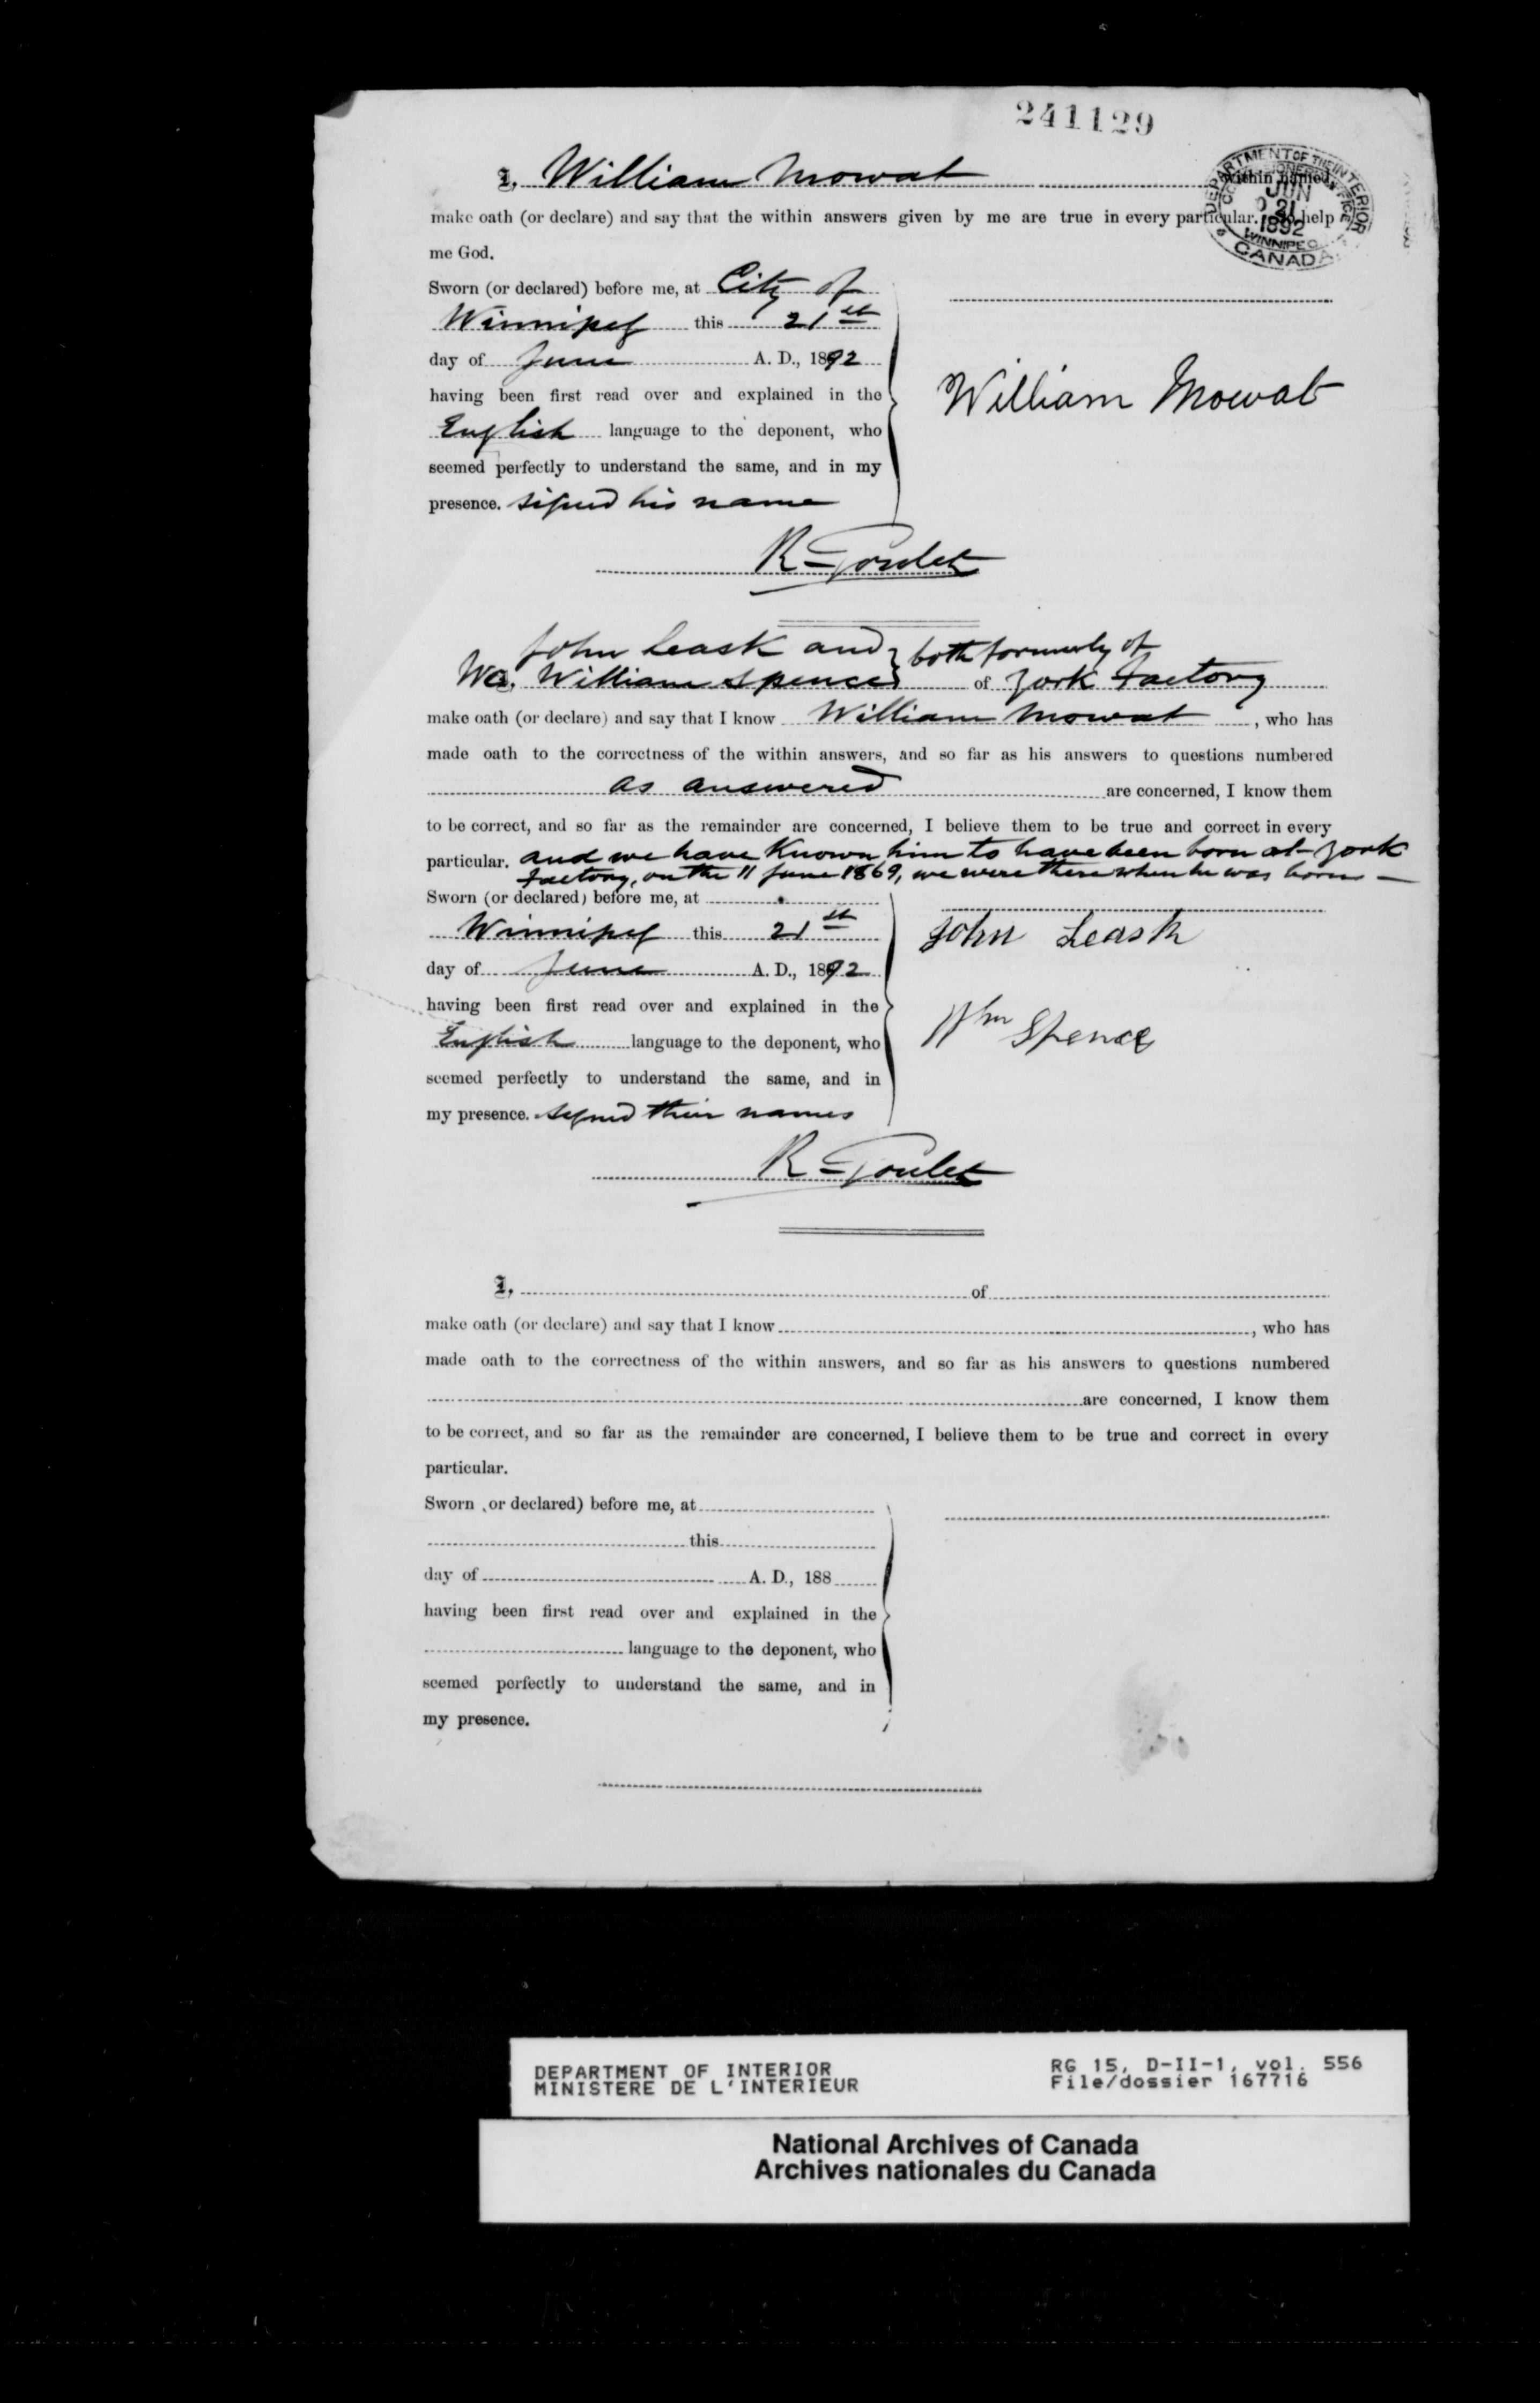 241129
I, William Mowat within named
make oath (or declare) and say that the within answers given by me are true in every particular. So help
me God.
DEPARTMENT OF THE INTERIOR
JUN
21
1892
WINNIPEG
CANADA
Sworn (or declared) before me, at City of
Winnipeg this 21st
day of June A. D., 1892
having been first read over and explained in the
English language to the deponent, who
seemed perfectly to understand the same, and in my
presence. signed his name
William Mowat
R Goulet
John Leask and both formerly of
We, William Spence of York Factory
make oath (or declare) and say that I know William Mowat, who has
made oath to the correctness of the within answers, and so far as his answers to questions numbered
as answered are concerned, I know them
to be correct, and so far as the remainder are concerned, I believe them to be true and correct in every
particular. and we have known him to have been born at York
Factory, on the 11 June 1869, we were there when he was born —
Sworn (or declared) before me, at
Winnipeg this 21st
day of June A. D., 1892
having been first read over and explained in the
English language to the deponent, who
seemed perfectly to understand the same, and in
my presence. signed their names
John Leask
Wm Spence
R Goulet
I, of
make oath (or declare) and say that I know , who has
made oath to the correctness of the within answers, and so far as his answers to questions numbered
are concerned, I know them
to be correct, and so far as the remainder are concerned, I believe them to be true and correct in every
particular.
Sworn (or declared) before me, at
this
day of A. D., 188
having been first read over and explained in the
language to the deponent, who
seemed perfectly to understand the same, and in
my presence.
DEPARTMENT OF INTERIOR
MINISTERE DE L'INTERIEUR
RG 15, D-II-1, vol. 556
File/dossier 167716
National Archives of Canada
Archives nationales du Canada